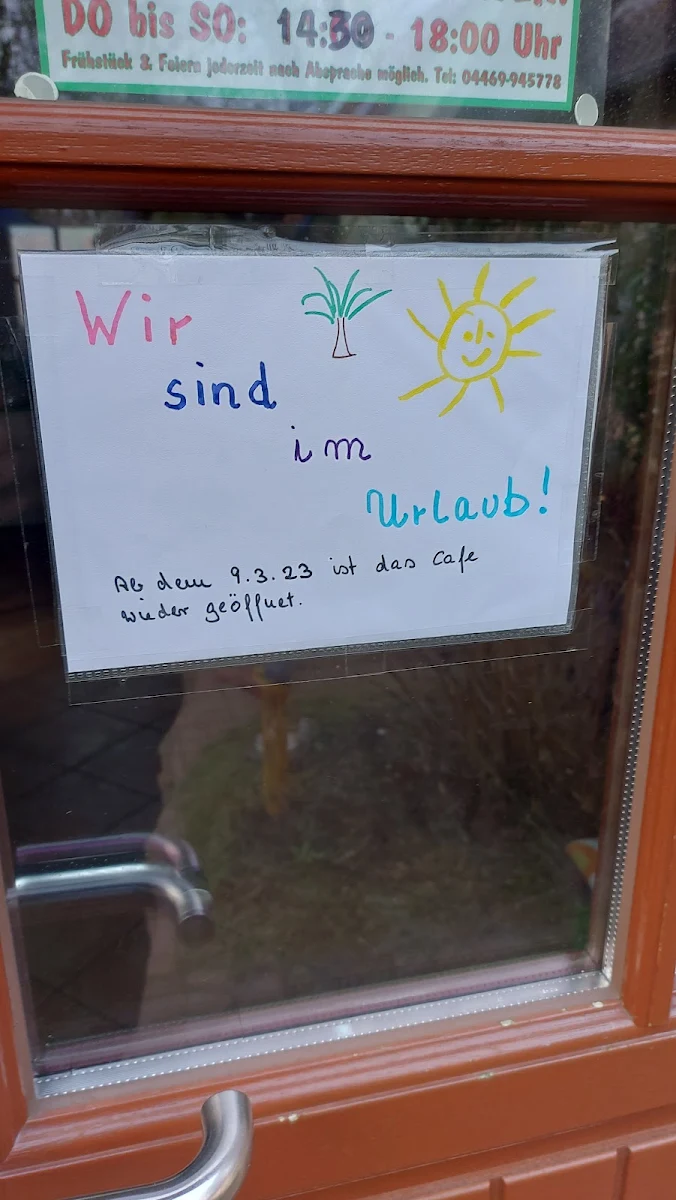 DO bis SO: 14:30 - 18:00 Uhr
Frühstück & Feiern jederzeit nach Absprache möglich. Tel: 04469-945778
Wir
sind
im
Urlaub!
Ab dem 9.3.23 ist das Cafe
wieder geöffnet.